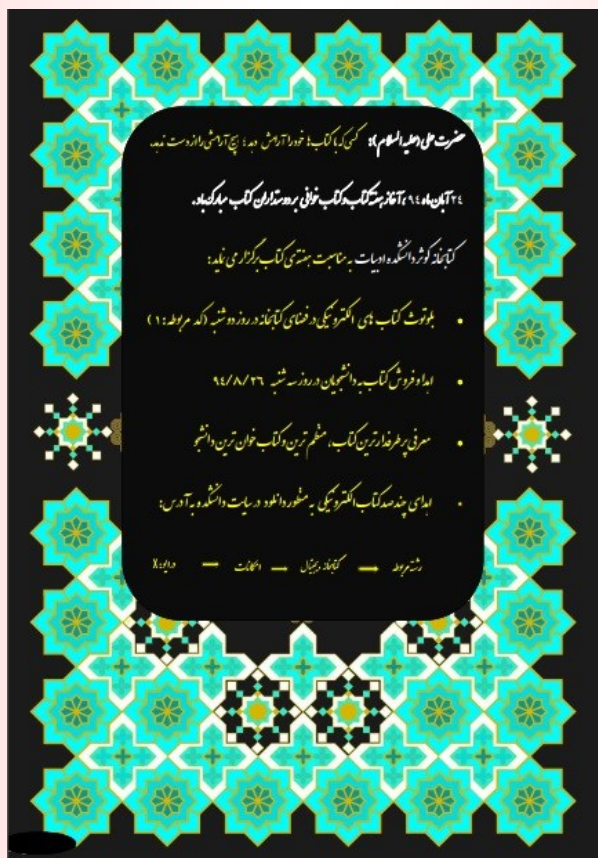 حضرت علی (علیه السلام): کسی که با کتاب ها خود را آرامش دهد؛ هیچ آرامشی را از دست ندهد.
۲۴ آبان ماه ۹۴، آغاز هفته کتاب و کتاب خوانی بر دوستداران کتاب مبارک باد.
کتابخانه کوثر دانشکده ادبیات به مناسبت هفته ی کتاب برگزار می نماید:
• بلوتوث کتاب های الکترونیکی در فضای کتابخانه در روز دوشنبه (کد مربوطه: ۱)
• اهدا و فروش کتاب به دانشجویان در روز سه شنبه ۹۴/۸/۲۶
• معرفی پرطرفدارترین کتاب، منظم ترین و کتاب خوان ترین دانشجو
• اهدای چند صد کتاب الکترونیکی به منظور دانلود در سایت دانشکده به آدرس:
رشته مربوطه → کتابخانه دیجیتال → امکانات → درایو: X